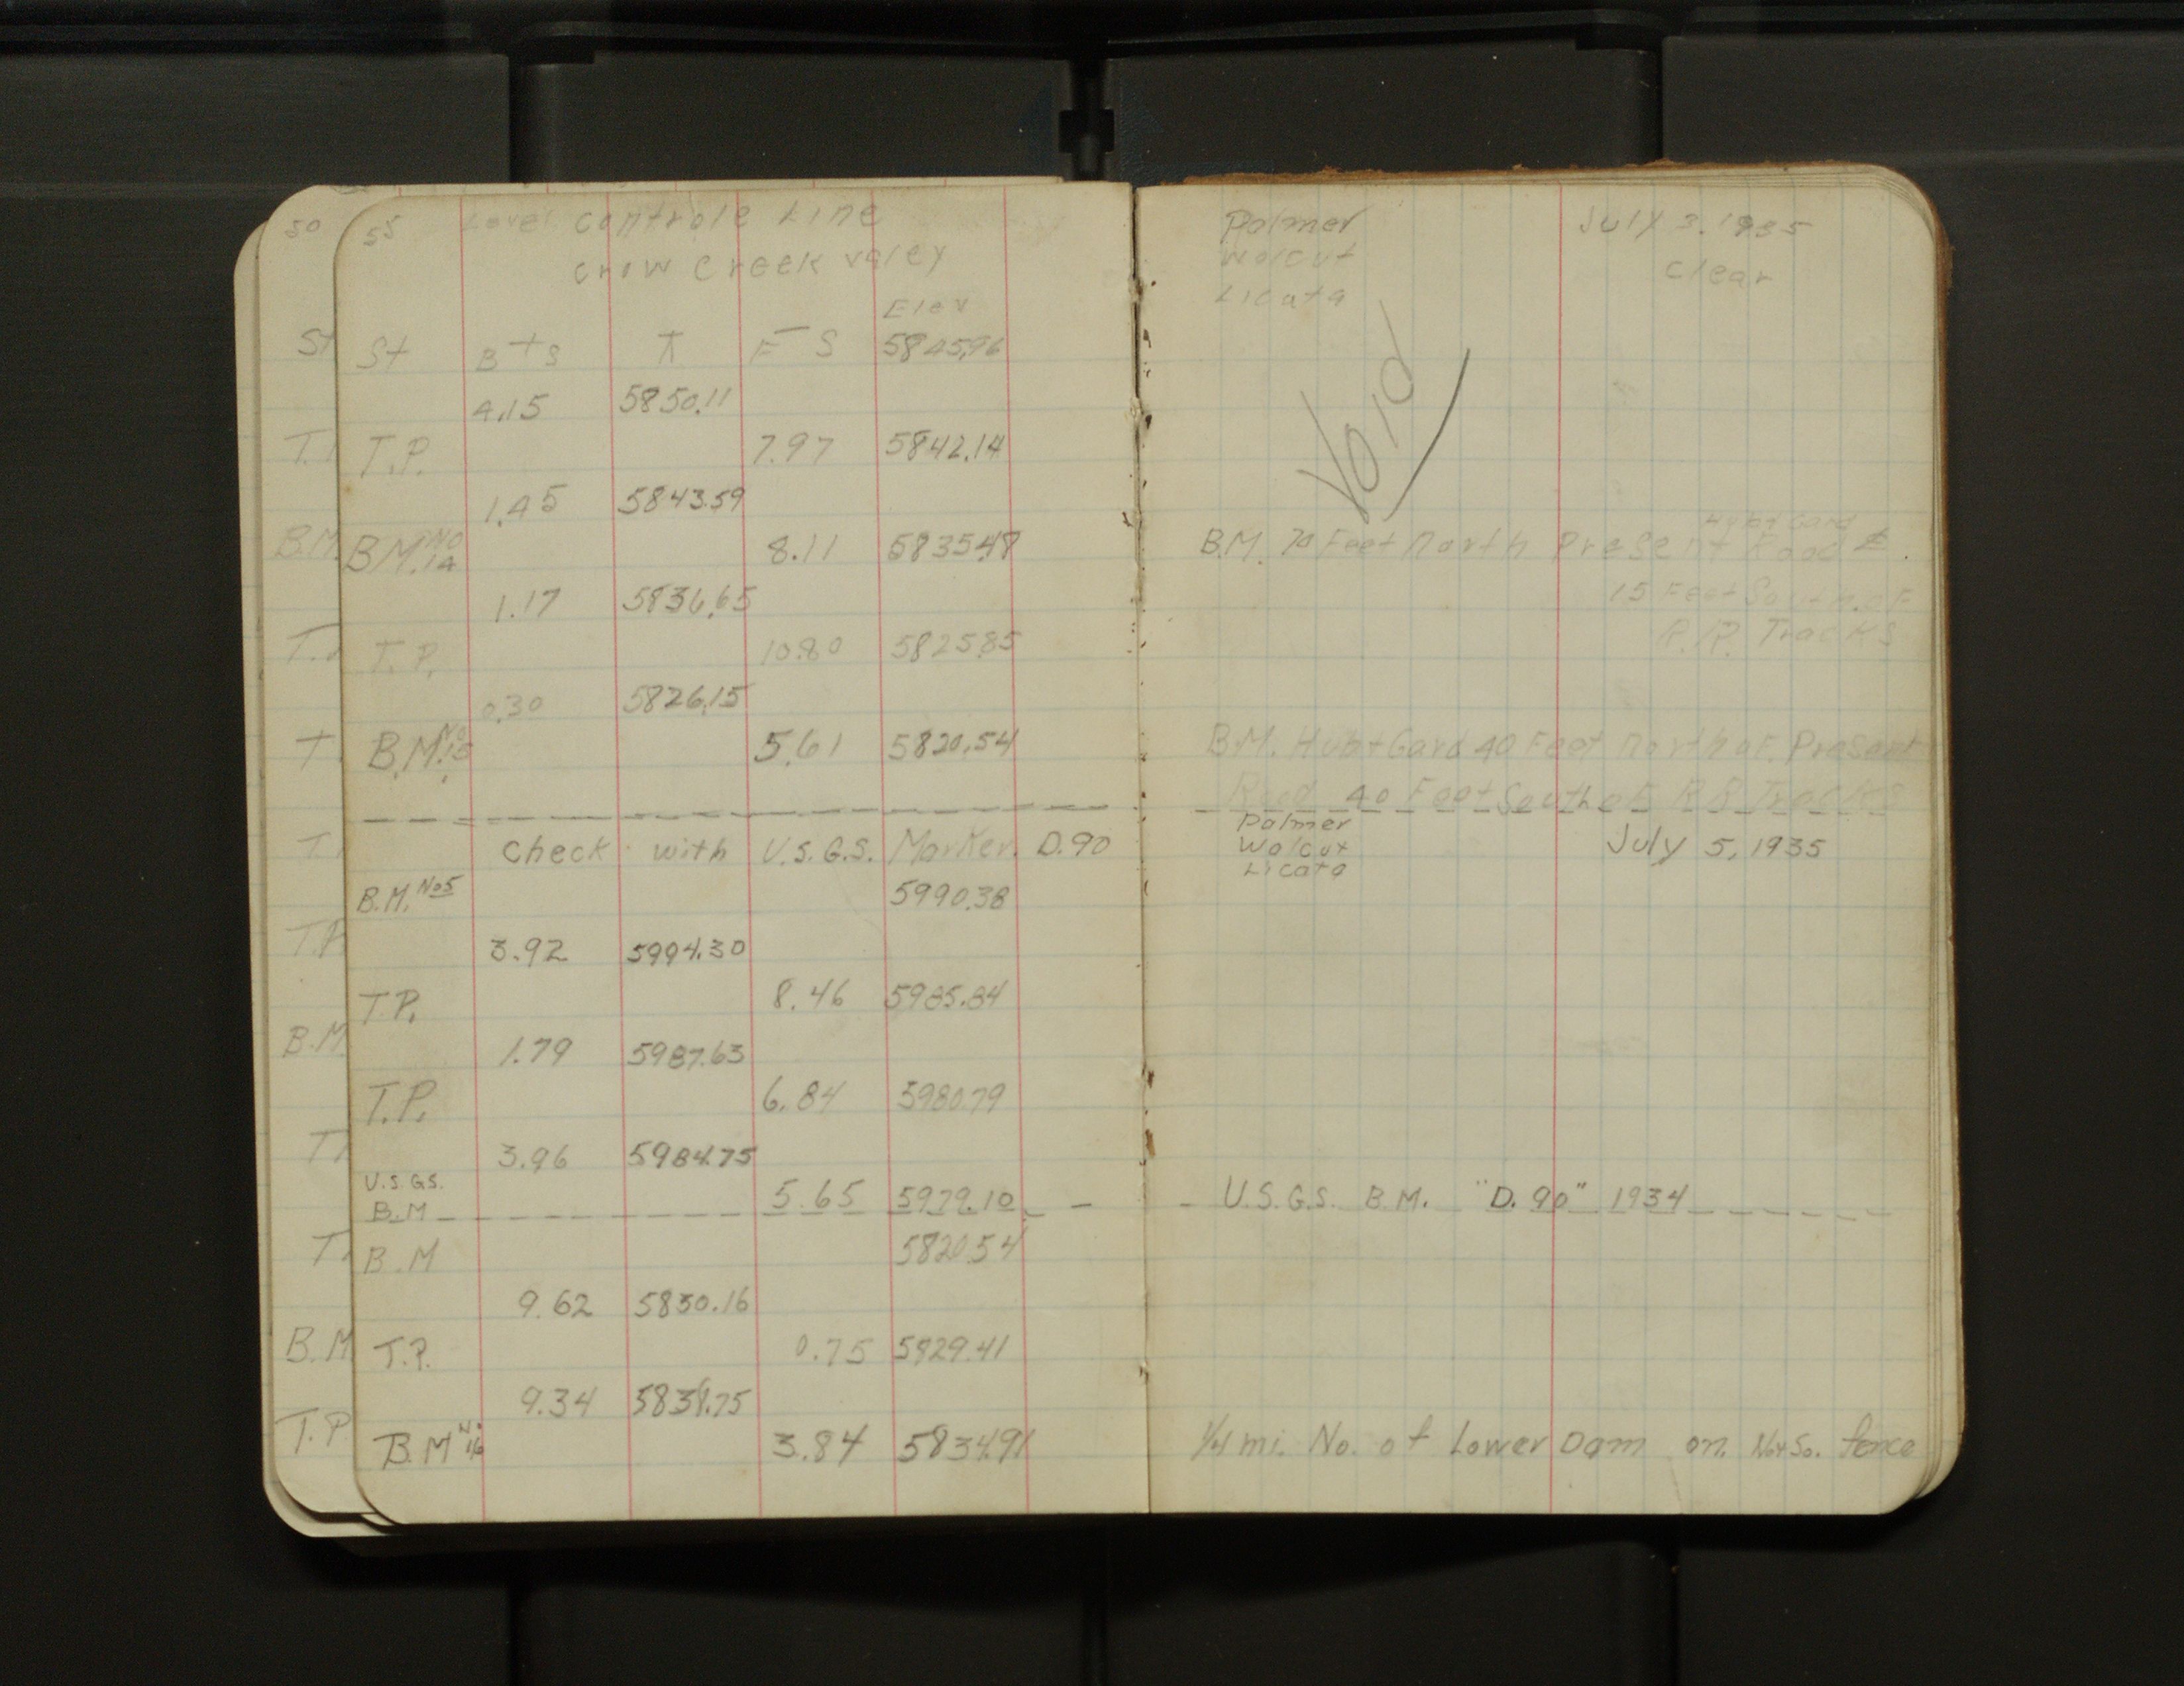 50 55 Level Controle Line
Crow Creek Valey
Elev
St St B+S ⊼ F-S 5845.96
4.15 5850.11
T.P. 7.97 5842.14
1.45 5843.59
B.M. BM. No 14 8.11 5835.48
1.17 5836.65
T. T.P. 10.80 5825.85
0.30 5826.15
T B.M. No 15 5.61 5820.54
T Check with U.S.G.S. Marker. D.90
B.M. No5 5990.38
T.P 3.92 5994.30
T.P. 8.46 5985.84
B.M. 1.79 5987.63
T.P. 6.84 5980.79
T 3.96 5984.75
U.S.G.S.
B.M 5.65 5979.10
T. B.M 5820.54
9.62 5830.16
B.M T.P. 0.75 5829.41
9.34 5838.75
T.P B.M No 16 3.84 5834.91
Palmer July 3. 1935
Wolcut Clear
Licata
Void
Hubt Gard
B.M. 70 Feet North Present Road
15 Feet South.oF
R.R. Tracks
B.M. Hubt Gard 40 Feet North oF. Present
Road 40 Feet South oF RR Tracks
Palmer July 5, 1935
Wolcut
Licata
U.S.G.S. B.M. "D. 90" 1934
1/4 mi. No. of Lower Dam on. No+So. fence